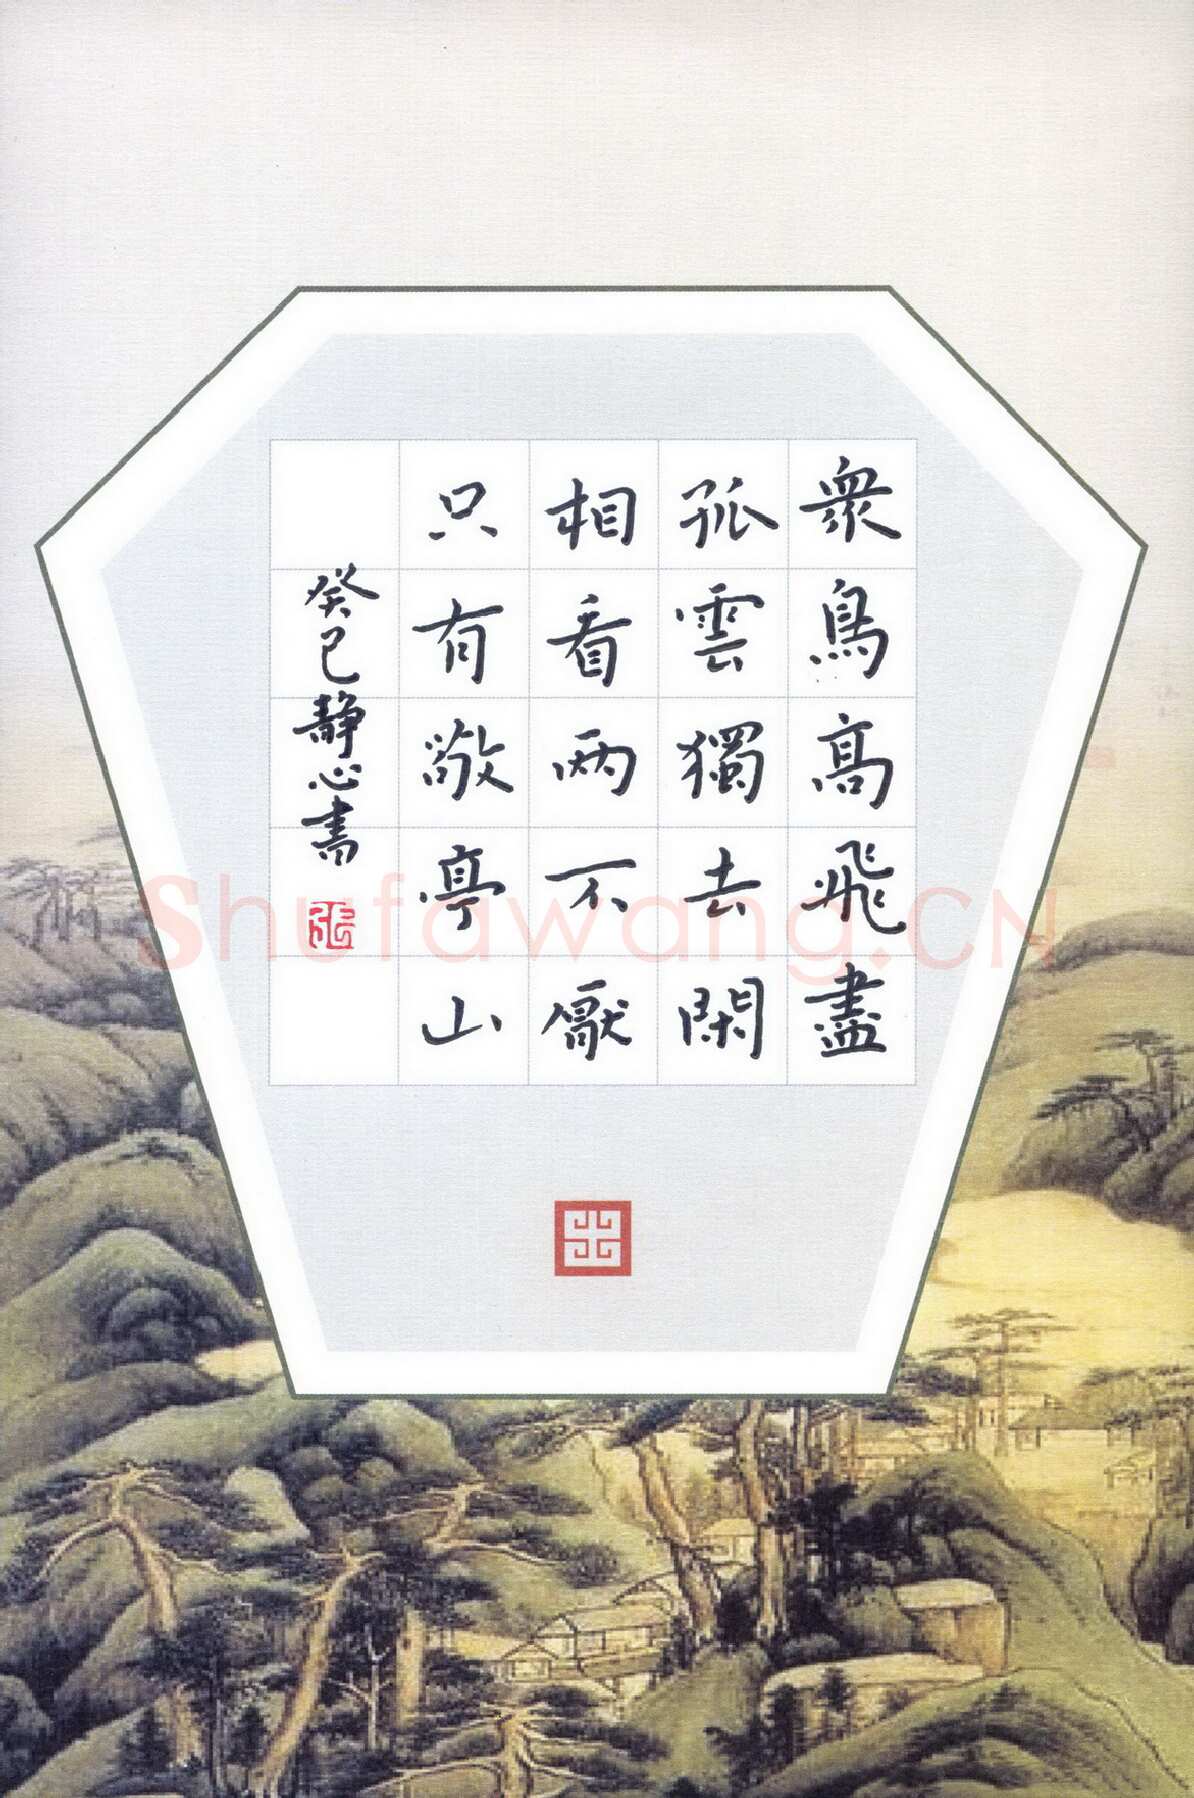 衆鳥高飛盡
孤雲獨去閑
相看兩不厭
只有敬亭山
癸巳静心書
張
Shufawang.CN